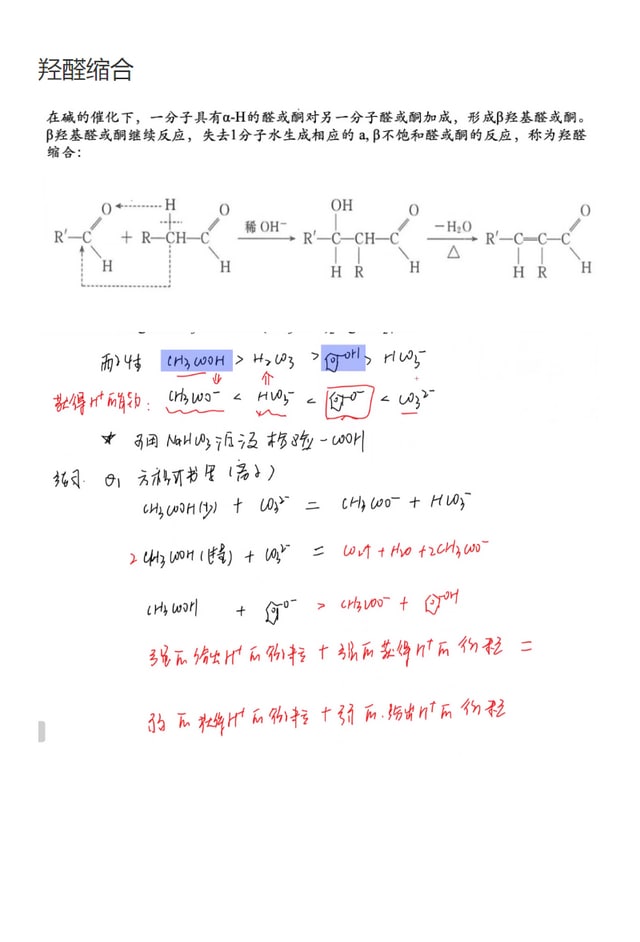 羟醛缩合
在碱的催化下，一分子具有α-H的醛或酮对另一分子醛或酮加成，形成β羟基醛或酮。
β羟基醛或酮继续反应，失去1分子水生成相应的 a, β不饱和醛或酮的反应，称为羟醛
缩合：
R'—C O H + R—CH—C H O H 稀 OH⁻ R'—C—CH—C OH H R O H −H₂O △ R'—C=C—C H R O H
酸性 CH₃COOH > H₂CO₃ > OH > HCO₃⁻
获得H⁺的能力: CH₃COO⁻ < HCO₃⁻ < O⁻ < CO₃²⁻
★ 可用 NaHCO₃ 溶液 检验 -COOH
练习. Q₁ 方程式书写 (离子)
CH₃COOH(少) + CO₃²⁻ = CH₃COO⁻ + HCO₃⁻
2 CH₃COOH (过量) + CO₃²⁻ = CO₂↑ + H₂O + 2CH₃COO⁻
CH₃COOH + O⁻ > CH₃COO⁻ + OH
强的给出H⁺的微粒 + 强的获得H⁺的微粒 =
弱的获得H⁺的微粒 + 弱的.给出H⁺的微粒